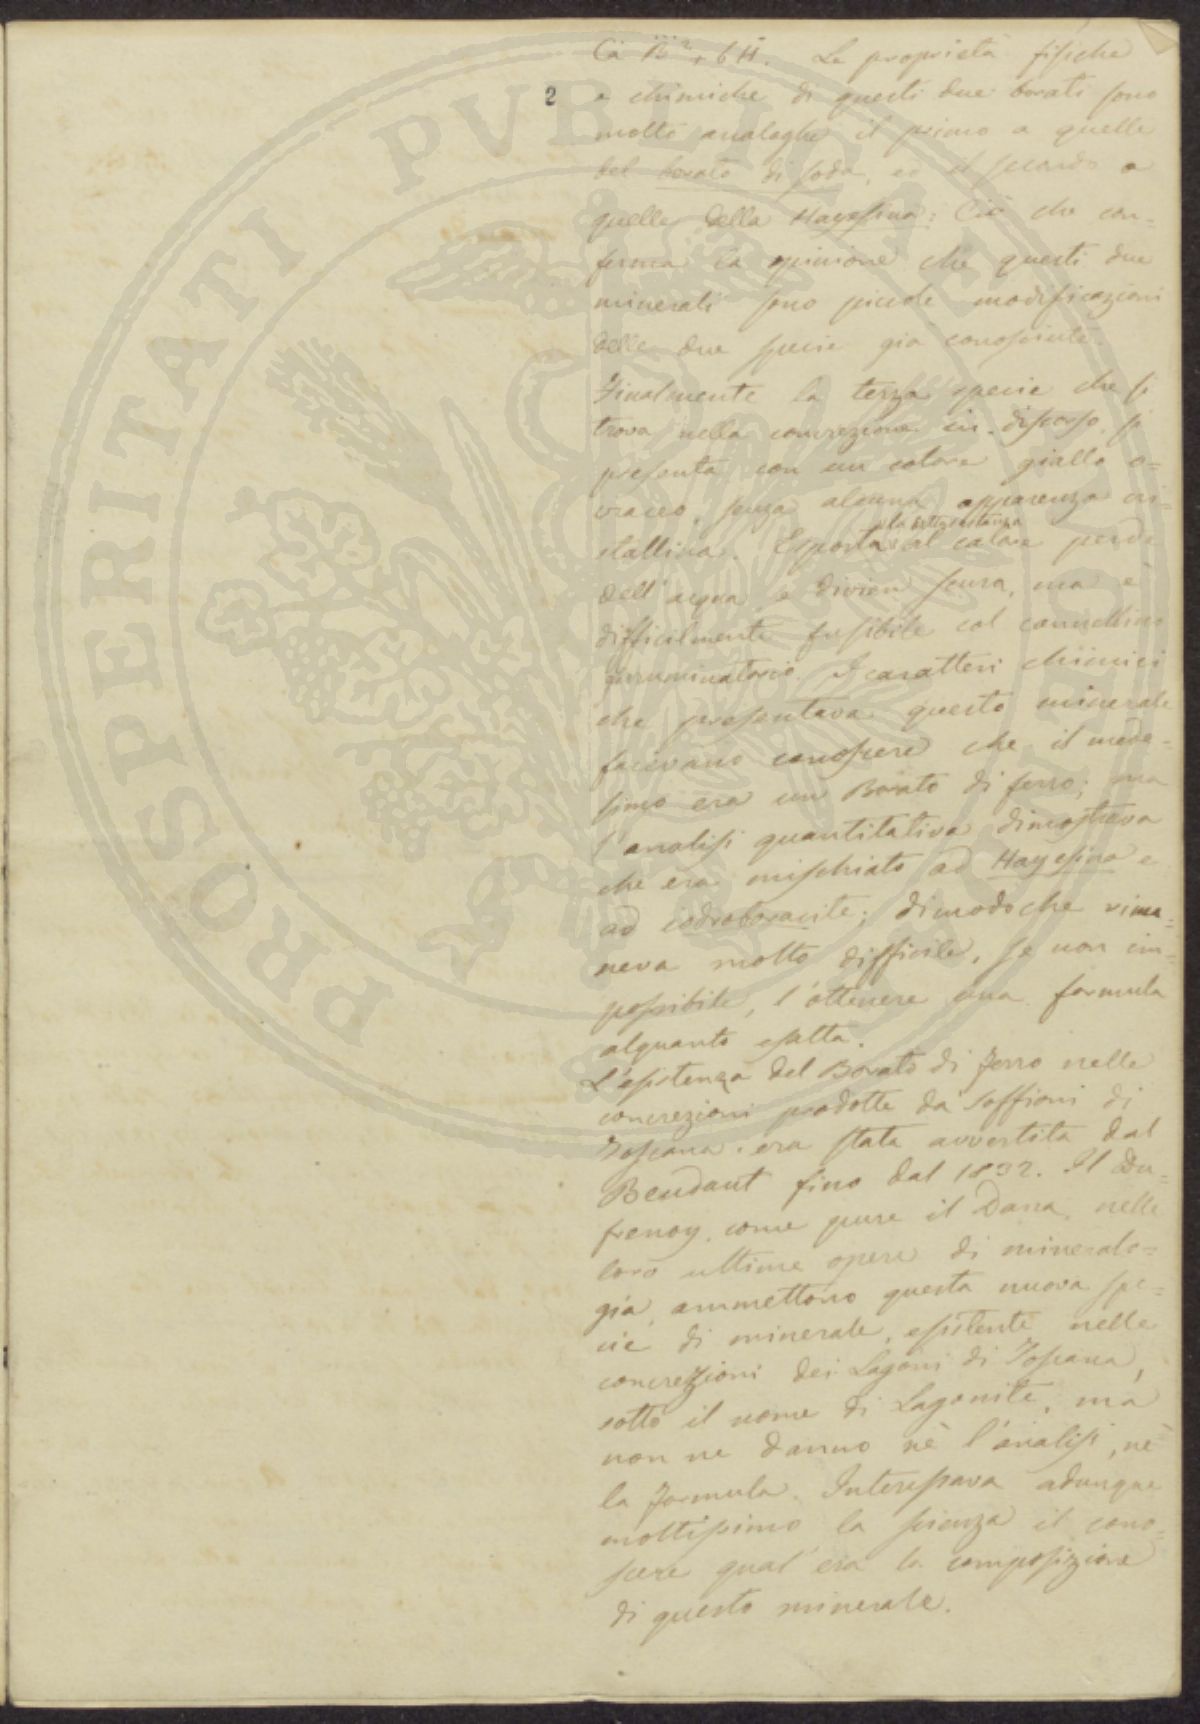 Ċa B⃛² + 6 Ḣ. Le proprietà fisiche
2
e chimiche di questi due borati sono
molto analoghe il primo a quelle
del borato di soda, ed il secondo a
quelle della Hayesina: Ciò che con=
ferma la opinione che questi due
minerali sono piccole modificazioni
delle due specie già conosciute.
Finalmente la terza specie che si
trova nella concrezione in discorso, si
presenta con un colore giallo o=
craceo, senza alcuna apparenza cri=
la detta sostanza
stallina. Esposta al calore perde
dell'acqua e divien scura, ma è
difficilmente fusibile col cannellino
ferruminatorio. I caratteri chimici
che presentava questo minerale
facevano conoscere che il mede=
simo era un Borato di ferro; ma
l'analisi quantitativa dimostrava
che era mischiato ad Hayesina e
ad idroboracite; dimodoche rima=
neva molto difficile, se non im=
possibile, l'ottenere una formula
alquanto esatta.
L'esistenza del Borato di ferro nelle
concrezioni prodotte da soffioni di
Toscana era stata avvertita dal
Beudant fino dal 1832. Il Du=
frenoy, come pure il Dana, nelle
loro ultime opere di mineralo=
gia, ammettono questa nuova spe=
cie di minerale, esistente nelle
concrezzioni dei Lagoni di Toscana,
sotto il nome di Lagonite, ma
non ne danno nè l'analisi, nè
la formula. Interessava adunque
moltissimo la scienza il cono=
scere qual'era la composizione
di questo minerale.
PROSPERITATI PVBLICAE